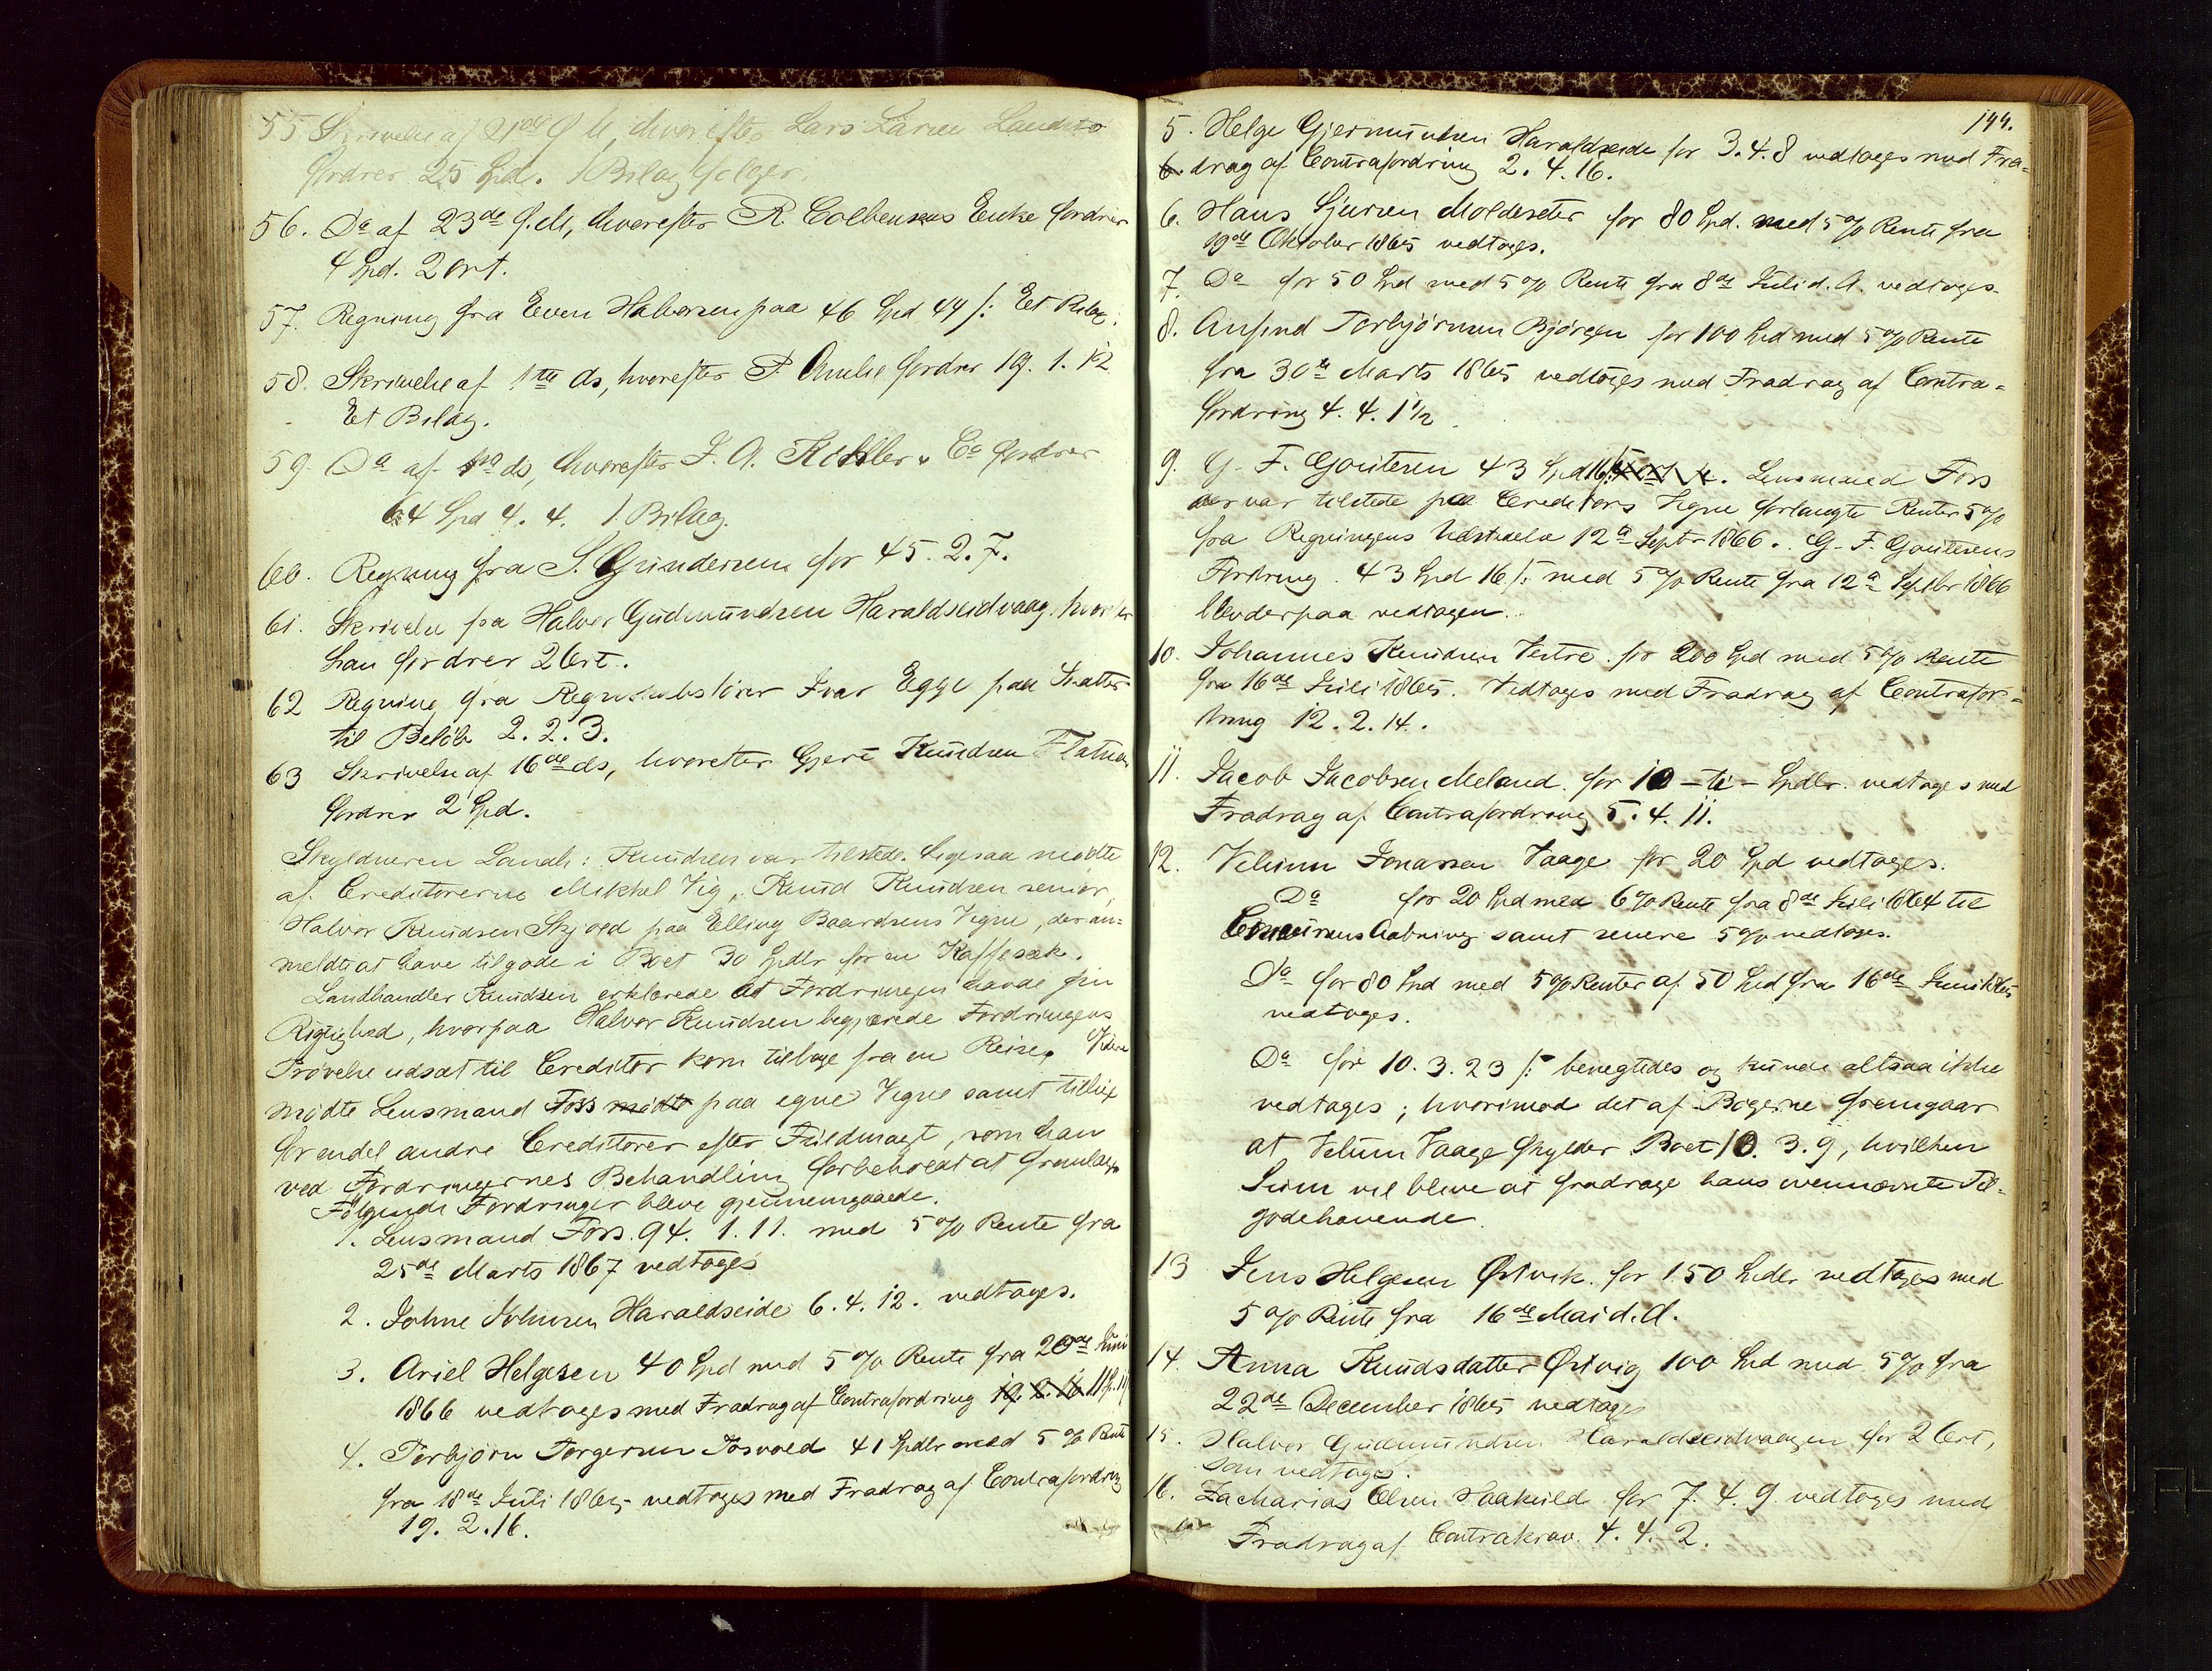 55 Skrivelse af 21de f. M., hvorefter Lars Larsen
fordrer 25 Spd. 1 Bilag følger.
56. Do af 23de f. M, hvorefter R Colbensens Enke fordrer
4 Spd. 2 ort.
57. Regning fra Even Halvorsen paa 46 Spd 44 s: Et Bilag.
58. Skrivelse af 1ste ds, hvorefter fordrer 19. 1. 12
Et Bilag.
59. Do af ds, hvorefter & Co fordrer
64 Spd 4. 4. 1 Bilag.
60. Regning fra S. Gundersen for 45. 2. 7.
61. Skrivelse fra Halvor Gudmundsen Haraldseidvaag, hvorefter
han fordrer 2 Ort.
62 Regning fra Regnskabsfører Ivar Egge paa Skatter
til Beløb 2. 2. 3.
63 Skrivelse af 16de ds, hvorefter Gjert Knudsen
fordrer 2 Spd.
Skyldneren Landh: Knudsen var tilstede. Ligesaa mødte
af Creditorerne Mikkel Vig, Knud Knudsen senior,
Halvor Knudsen Skjold paa Elling Baardsens Vegne, der an-
meldte at have tilgode i Boet 30 Spdlr for en Kaffesæk.
Landhandler Knudsen erklærede at Fordringen havde sin
Rigtighed, hvorpaa Halvor Knudsen begjærede Fordringens
Prøvelse udsat til Creditor kom tilbage fra en Reise. Videre
mødte Lensmand Foss mødte paa egne Vegne samt tillige
for endel andre Creditorer efter Fuldmagt, som han
ved Fordringernes Behandling forbeholdt at fremlægge
Følgende Fordringer bleve gjennemgaaede.
1. Lensmand Foss. 94. 1. 11. med 5 % Rente fra
25de Marts 1867 vedtages
2. Johne Johnsen Haraldseide 6. 4. 12. vedtages.
3. Ariel Helgesen 40 Spd med 5 % Rente fra 20de Juni
1866 vedtages med Fradrag af Contrafordring 19. 2. 16
4. Torbjørn Torgersen Tosvold 41 Spdlr med 5 % Rente
fra 18de Juli 1865 vedtages med Fradrag af Contrafordring
19. 2. 16.
144.
5. Helge Gjermundsen Haraldseide for 3. 4. 8 vedtages med Fra-
6. drag af Contrafordring 2. 4. 16.
6. Hans Sjursen Moldeseter for 80 Spd. med 5 % Rente fra
19de Oktober 1865 vedtages.
7. Do for 50 Spd med 5 % Rente fra 8de Juli d. A. vedtages.
8. Aufind Torbjørnsen Bjørgen for 100 Spd med 5 % Rente
fra 30te Marts 1865 vedtages med Fradrag af Contra-
fordring 4. 4. 1 1/2
9. G. F. Goutesen 43 Spd 16 s. Lensmand Foss
der var tilstede paa Creditors Vegne forlangte Renter 5 %
fra Regningens Udstedelse 12te Septr 1866. G. F. Goutesens
Fordring 43 Spd 16 s: med 5 % Rente fra 12te Septbr 1866
blev derpaa vedtagen.
10. Johannes Knudsen Vestre for 200 Spd med 5 % Rente
fra 16de Juli 1865. Vedtages med Fradrag af Contrafor-
dring 12. 2. 14.
11. Jacob Jacobsen Meland. for 10 - ti - Spdlr. vedtages med
Fradrag af Contrafordring 5. 4. 11.
12. Velum Jonassen Vaage for 20 Spd vedtages.
Do for 20 Spd med 6 % Rente fra 8de Juli 1864 til
Concursens Aabning samt senere 5 % vedtages.
Do for 80 Spd med 5 % Renter af 50 Spd fra 16de Juni 1865
vedtages.
Do for 10. 3. 23 s: benegtedes og kunde altsaa ikke
vedtages; hvorimod det af Bøgerne fremgaar
at Velum Vaage skylder Boet 10. 3. 9, hvilken
Sum vil blive at fradrage hans ovennævnte Til-
godehavende.
13 Jens Helgesen Østvik. for 150 Spdlr vedtages med
5 % Rente fra 16de Mai d. A.
14. Anna Knudsdatter Østvig 100 Spd med 5 % fra
22de December 1865 vedtages
15. Halvor Gudmundsen Haraldseidvaagen for 2 Ort,
som vedtages.
16. Zacharias Olsen Haakuld for 7. 4. 9 vedtages med
Fradrag af Contrakrav. 4. 4. 2.